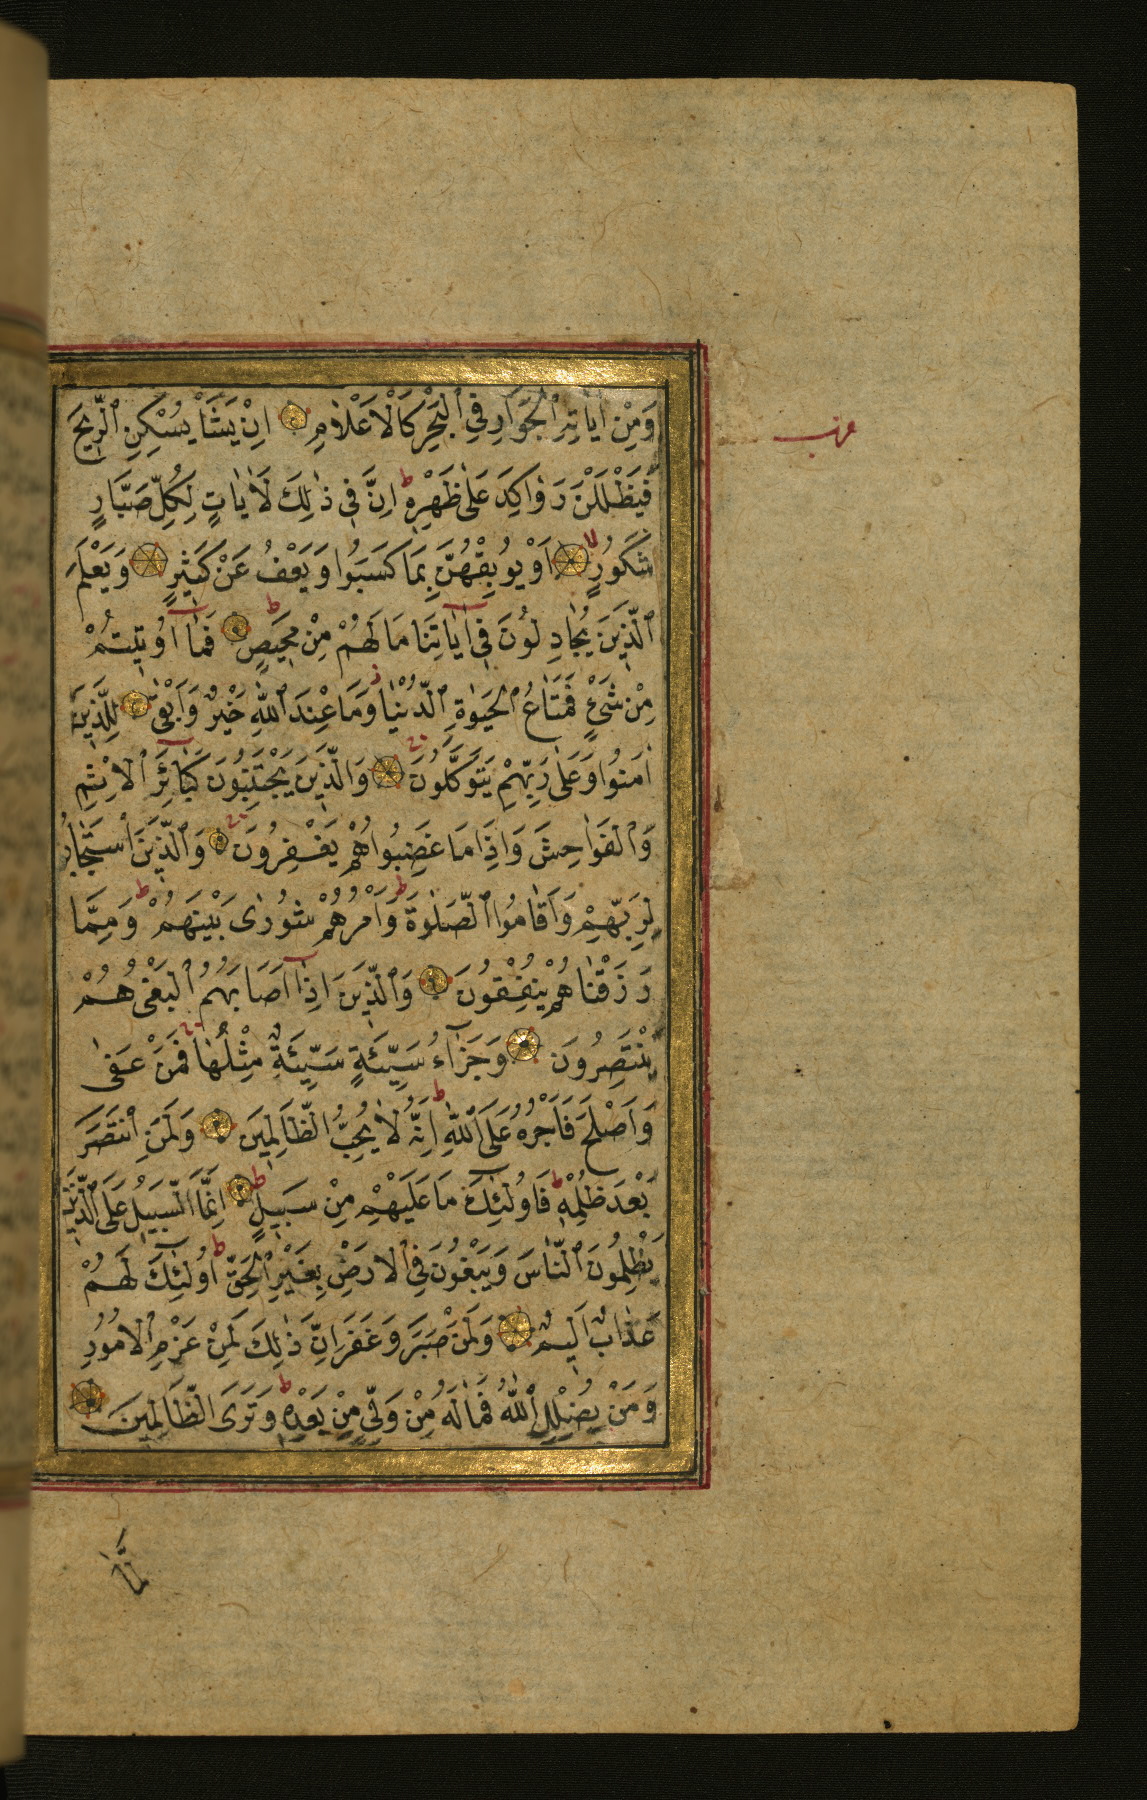 وَمِنْ اٰيَاتِهِ الْجَوَارِ فِي الْبَحْرِ كَالْاَعْلَامِ اِنْ يَشَأْ يُسْكِنِ الرِّيحَ
فَيَظْلَلْنَ رَوَاكِدَ عَلٰى ظَهْرِهٖ ط اِنَّ فِي ذٰلِكَ لَاٰيَاتٍ لِكُلِّ صَبَّارٍ
شَكُورٍ لا اَوْ يُوبِقْهُنَّ بِمَا كَسَبُوا وَيَعْفُ عَنْ كَثِيرٍ وَيَعْلَمَ
الَّذِينَ يُجَادِلُونَ فِي اٰيَاتِنَا مَا لَهُمْ مِنْ مَحِيصٍ ط فَمَا اُوتِيتُمْ
مِنْ شَيْءٍ فَمَتَاعُ الْحَيٰوةِ الدُّنْيَا ز وَمَا عِنْدَ اللّٰهِ خَيْرٌ وَاَبْقٰى لِلَّذِينَ
اٰمَنُوا وَعَلٰى رَبِّهِمْ يَتَوَكَّلُونَ وَالَّذِينَ يَجْتَنِبُونَ كَبَائِرَ الْاِثْمِ
وَالْفَوَاحِشَ وَاِذَا مَا غَضِبُوا هُمْ يَغْفِرُونَ وَالَّذِينَ اسْتَجَابُوا
لِرَبِّهِمْ وَاَقَامُوا الصَّلٰوةَ ط وَاَمْرُهُمْ شُورٰى بَيْنَهُمْ ط وَمِمَّا
رَزَقْنَاهُمْ يُنْفِقُونَ وَالَّذِينَ اِذَا اَصَابَهُمُ الْبَغْيُ هُمْ
يَنْتَصِرُونَ وَجَزَاءُ سَيِّئَةٍ سَيِّئَةٌ مِثْلُهَا فَمَنْ عَفٰى
وَاَصْلَحَ فَاَجْرُهُ عَلَى اللّٰهِ ط اِنَّهُ لَا يُحِبُّ الظَّالِمِينَ وَلَمَنِ انْتَصَرَ
بَعْدَ ظُلْمِهٖ ط فَاُولٰئِكَ مَا عَلَيْهِمْ مِنْ سَبِيلٍ ط اِنَّمَا السَّبِيلُ عَلَى الَّذِينَ
يَظْلِمُونَ النَّاسَ وَيَبْغُونَ فِي الْاَرْضِ بِغَيْرِ الْحَقِّ ط اُولٰئِكَ لَهُمْ
عَذَابٌ اَلِيمٌ وَلَمَنْ صَبَرَ وَغَفَرَ اِنَّ ذٰلِكَ لَمِنْ عَزْمِ الْاُمُورِ
وَمَنْ يُضْلِلِ اللّٰهُ فَمَا لَهُ مِنْ وَلِيٍّ مِنْ بَعْدِهٖ ط وَتَرَى الظَّالِمِينَ
لَمَّا